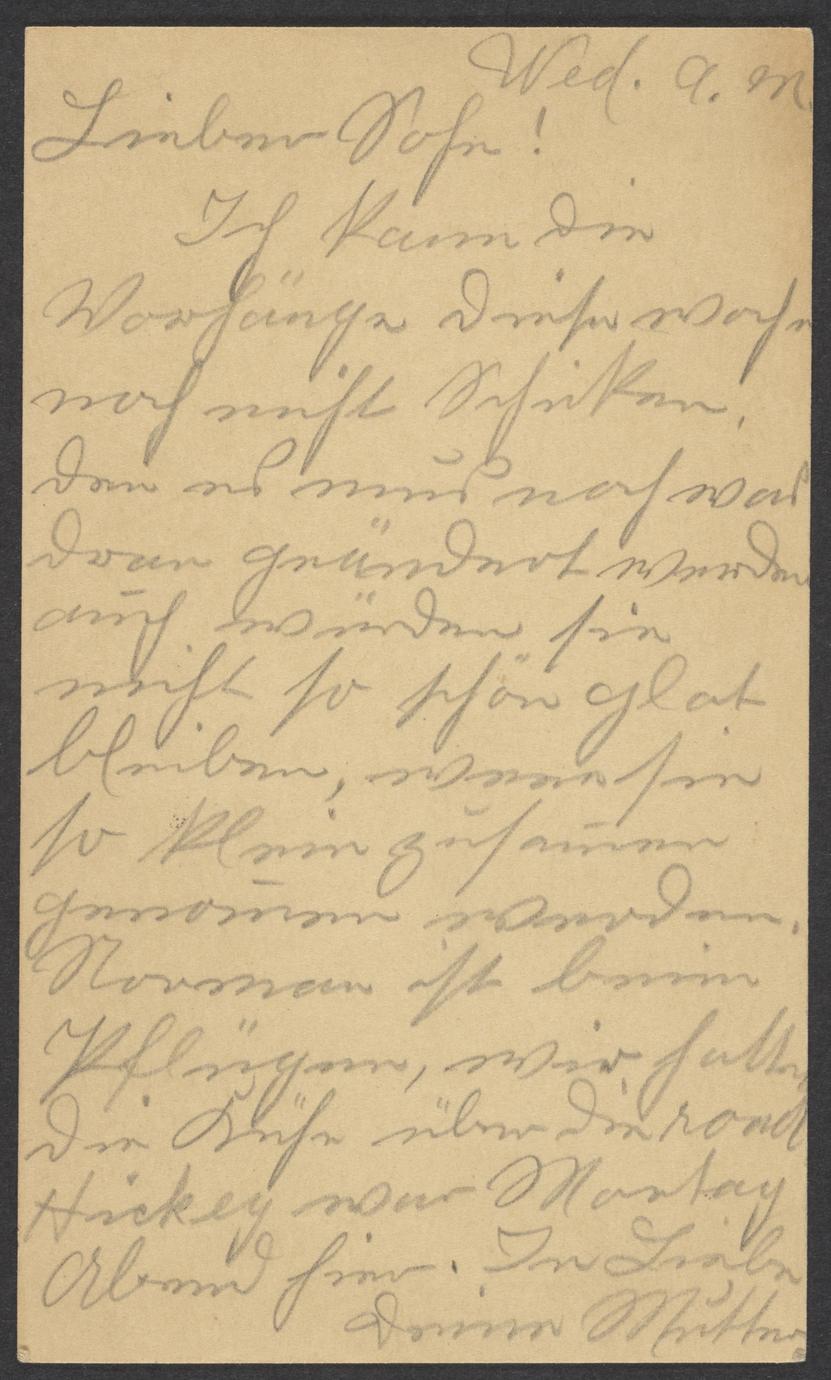 Wed. A. M.
Lieber Sohn!
Ich kann die
Vorhänge diese woche
noch nicht Schicken,
den es mus noch was
dran geändert werden
auch würden sie
nicht so schön glat
bleiben, wenn sie
so klein zusam̅en
genom̅en werden.
Norman ist beim
Pflügen, wir hatten
die Kühe über die road
Hickey war Montag
Abend hier. In Liebe
Deine Mutter